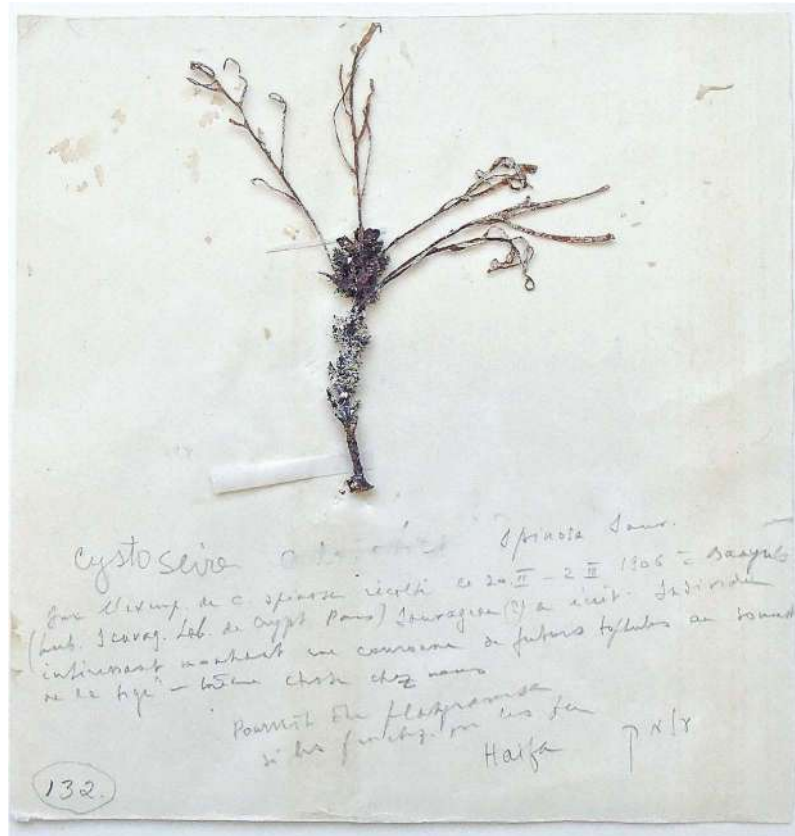 Cystoseira spinosa Sauv.
Sur l'exemp. de C. spinosa récolté le 20.II – 2 III 1906 à Banyuls
(herb. Sauvag. Lab. de Crypt Paris) Sauvageau (?) a écrit. Individu
intéressant montrant une couronne de futurs tophules au sommet
de la tige – même chose chez nous
Pourrait être
si les par les
Haifa
132.